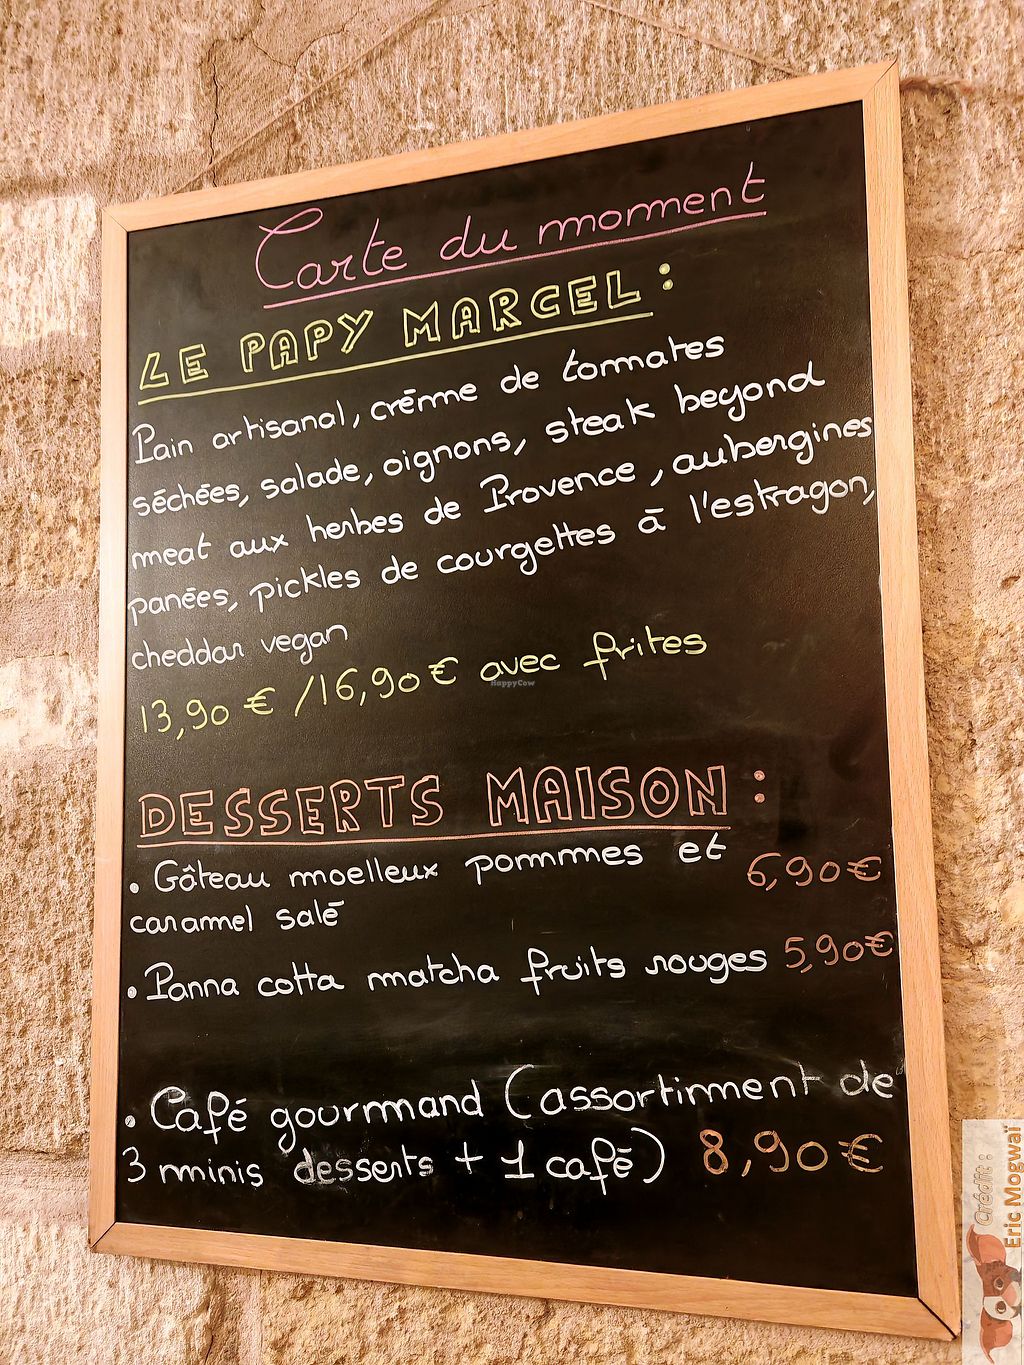 Carte du moment
LE PAPY MARCEL :
Pain artisanal, crème de tomates
séchées, salade, oignons, steak beyond
meat aux herbes de Provence, aubergines
panées, pickles de courgettes à l'estragon,
cheddar vegan
13,90 € / 16,90 € avec frites
HappyCow
DESSERTS MAISON :
• Gâteau moelleux pommes et 6,90 €
caramel salé
• Panna cotta matcha fruits rouges 5,90 €
• Café gourmand (assortiment de
3 minis desserts + 1 café) 8,90 €
Crédit :
Eric Mogwaï